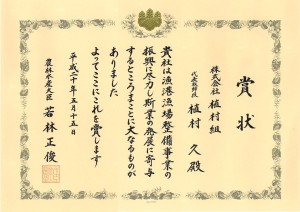 賞状
株式会社 植村組
代表取締役 植村 久 殿
貴社は漁港漁場整備事業の
振興に尽力し斯業の発展に寄与
するところまことに大なるものが
ありました
よってここにこれを賞します
平成二十年五月十五日
農林水産大臣 若林正俊